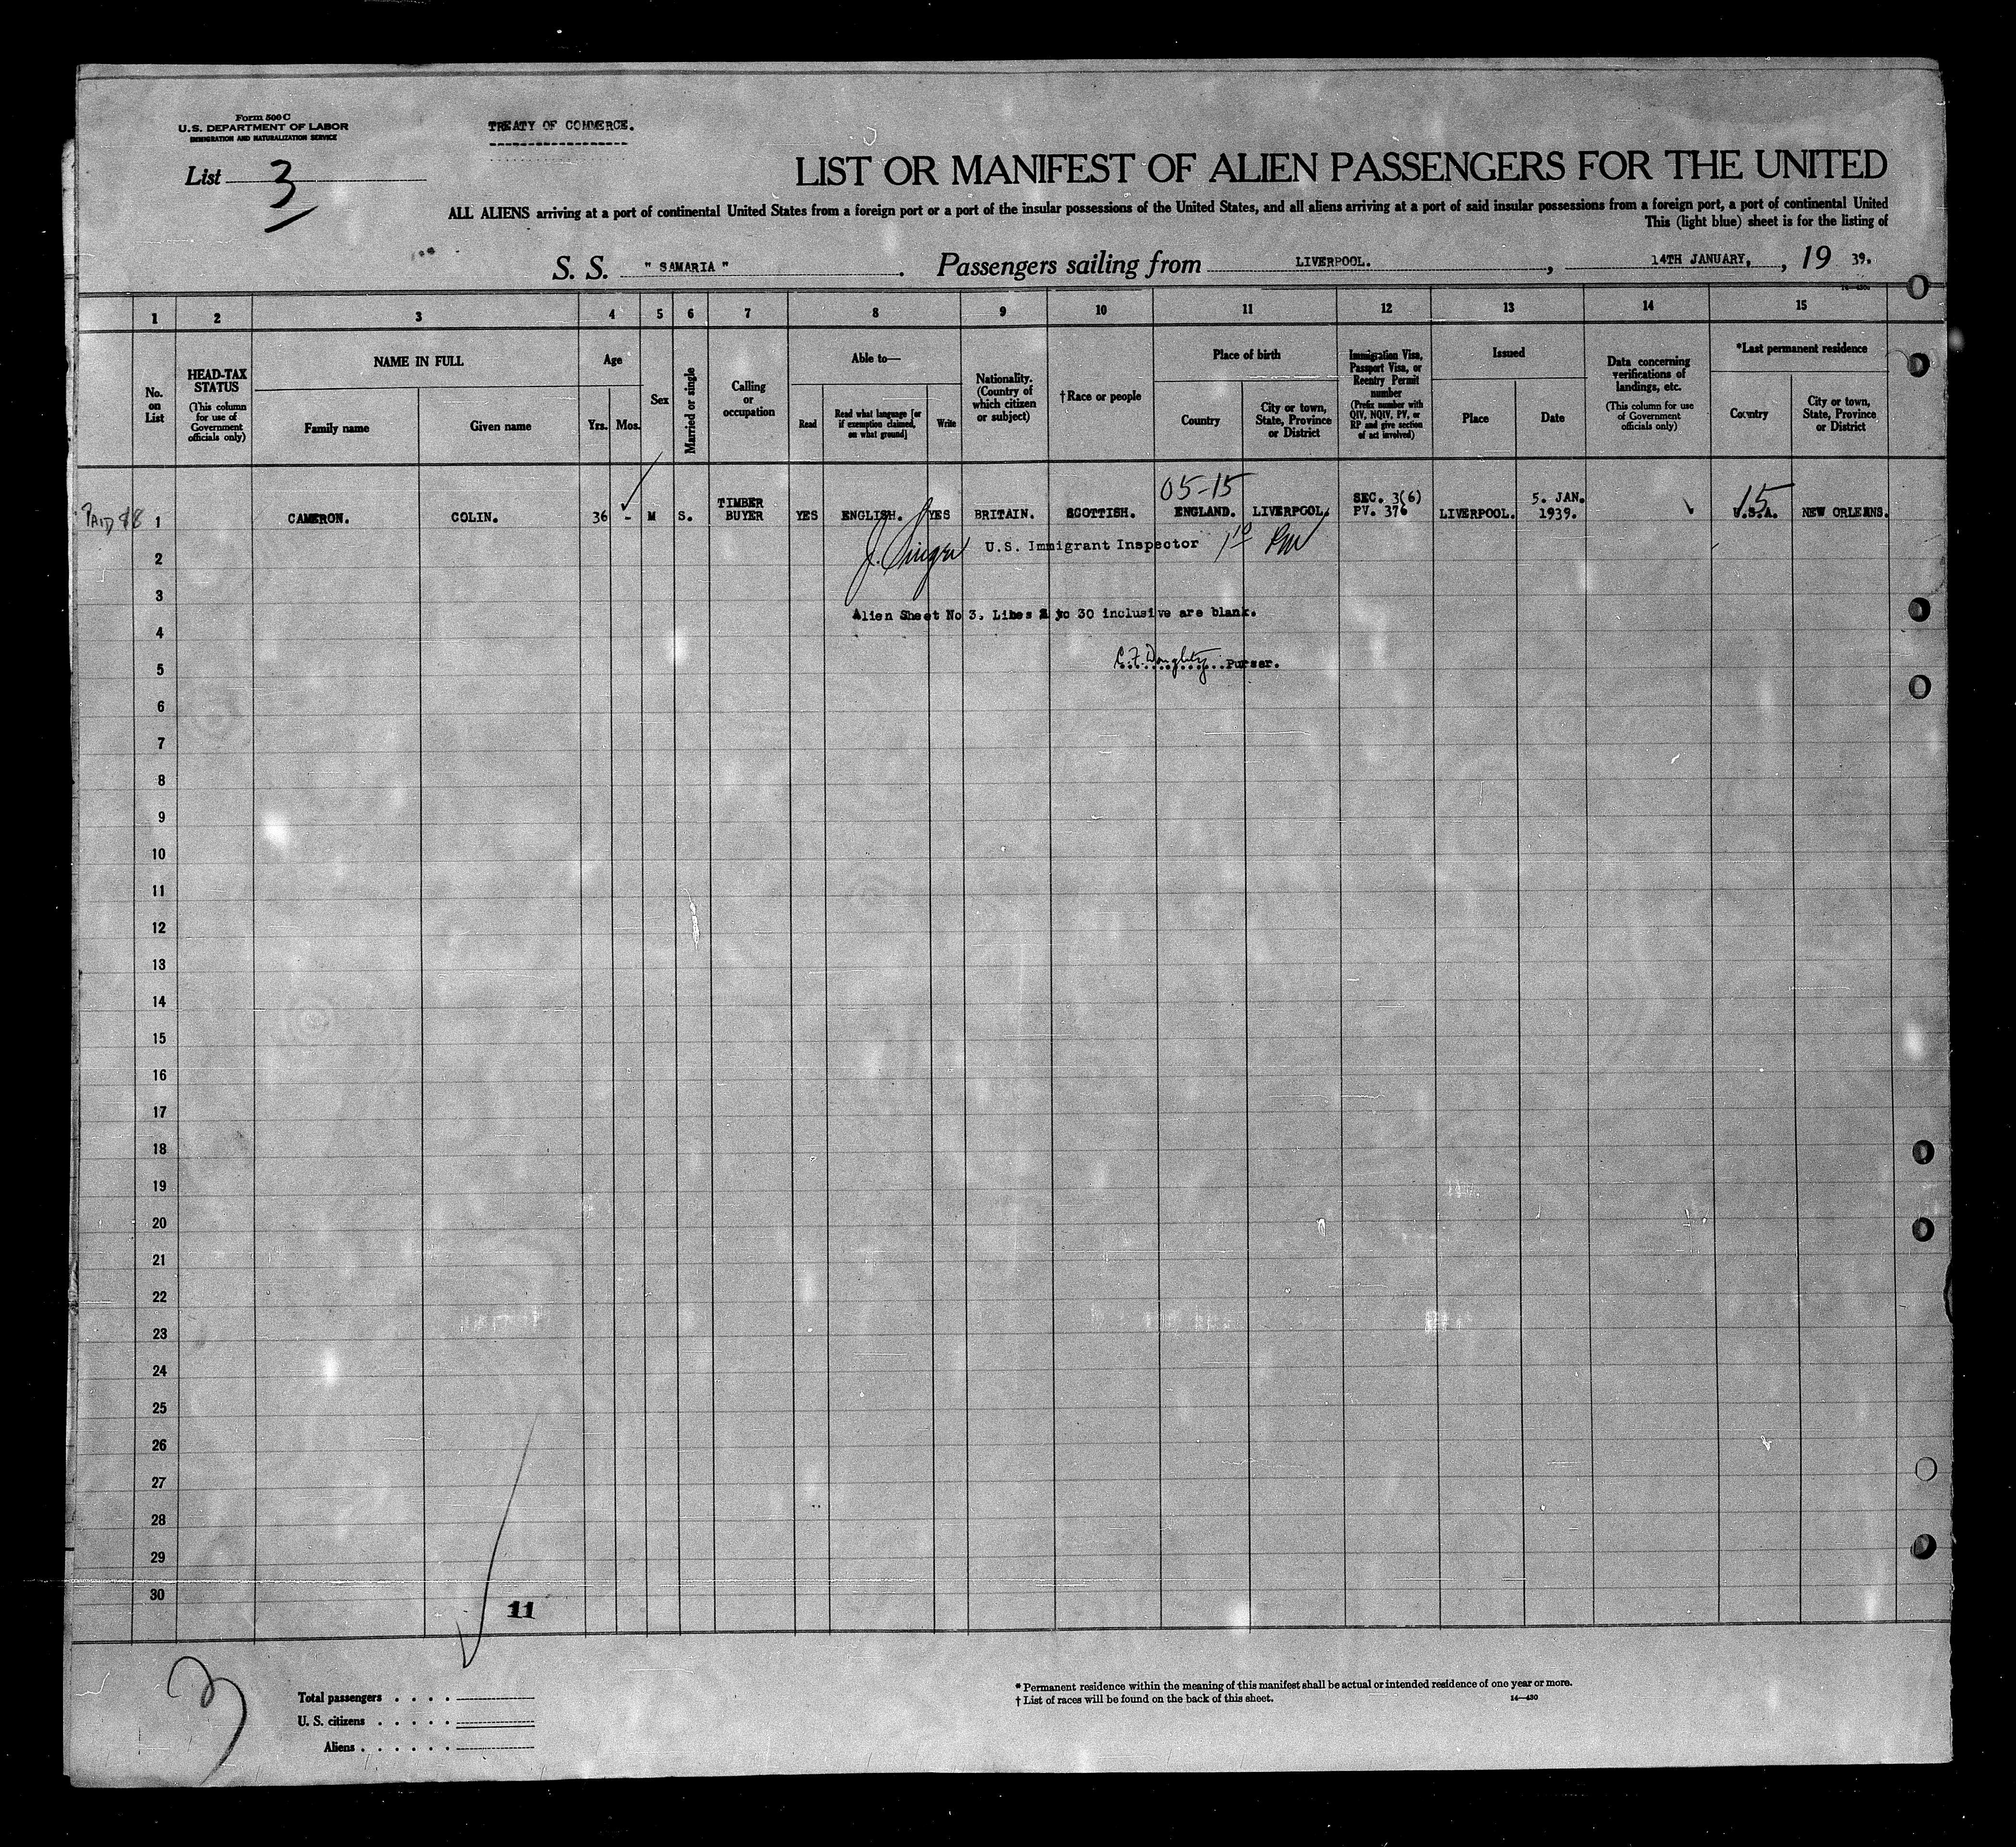 Form 500 C
U.S. DEPARTMENT OF LABOR
IMMIGRATION AND NATURALIZATION SERVICE
TREATY OF COMMERCE.
List 3
LIST OR MANIFEST OF ALIEN PASSENGERS FOR THE UNITED
ALL ALIENS arriving at a port of continental United States from a foreign port or a port of the insular possessions of the United States, and all aliens arriving at a port of said insular possessions from a foreign port, a port of continental United
This (light blue) sheet is for the listing of
S. S. " SAMARIA " . Passengers sailing from LIVERPOOL. , 14TH JANUARY, , 19 39.
1 2 3 4 5 6 7 8 9 10 11 12 13 14 15
No. on List
HEAD-TAX STATUS
(This column for use of Government officials only)
NAME IN FULL
Family name
Given name
Age
Yrs. Mos.
Sex
Married or single
Calling or occupation
Able to—
Read
Read what language [or if exemption claimed, on what ground]
Write
Nationality. (Country of which citizen or subject)
†Race or people
Place of birth
Country
City or town, State, Province or District
Immigration Visa, Passport Visa, or Reentry Permit number
(Prefix number with QIV, NQIV, PV, or RP and give section of act involved)
Issued
Place
Date
Data concerning verifications of landings, etc.
(This column for use of Government officials only)
*Last permanent residence
Country
City or town, State, Province or District
05-15
15
PAID 1 CAMERON. COLIN. 36 - M S. TIMBER BUYER YES ENGLISH. YES BRITAIN. SCOTTISH. ENGLAND. LIVERPOOL. SEC. 3(6) PV. 376 LIVERPOOL. 5. JAN. 1939. U.S.A. NEW ORLEANS.
2 U.S. Immigrant Inspector
3
Alien Sheet No 3. Lines 2 to 30 inclusive are blank.
4
C.F. Doughty Purser.
5
6
7
8
9
10
11
12
13
14
15
16
17
18
19
20
21
22
23
24
25
26
27
28
29
30
11
3
Total passengers . . . .
U. S. citizens . . . . .
Aliens . . . . . .
* Permanent residence within the meaning of this manifest shall be actual or intended residence of one year or more.
† List of races will be found on the back of this sheet.
14—430